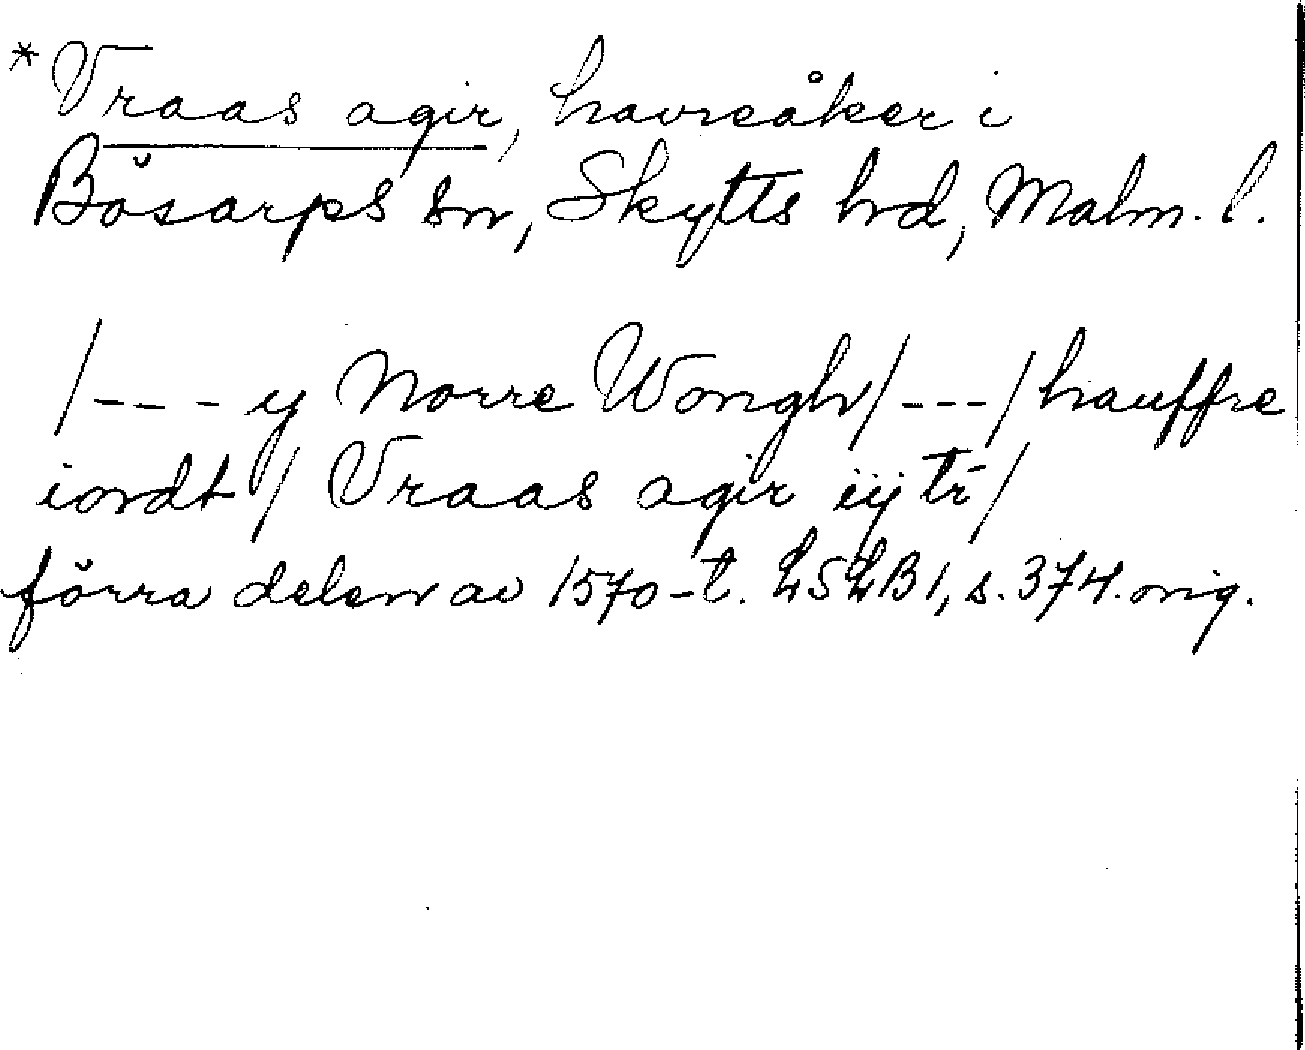 *Vraas agir, havreåker i
Bösarps sn, Skytts hd, Malm. l.
/--- y Norre Wongh/---/hauffre
iordt/ Vraas agir iij tr/
förra delen av 1570-t. LSLB1, s. 374. orig.